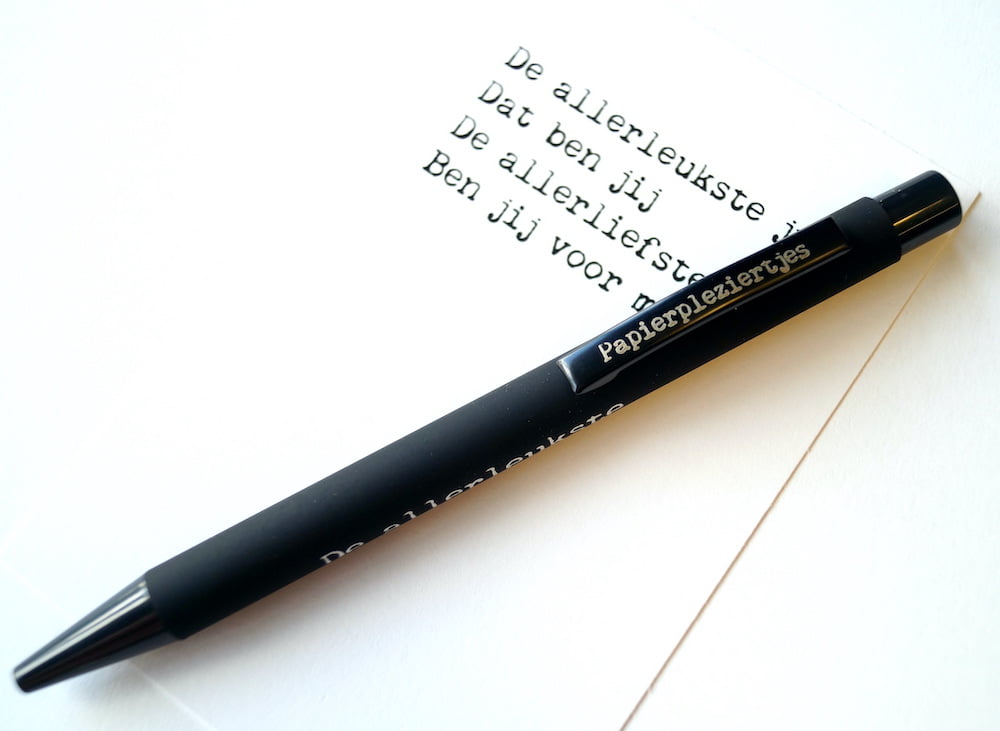 De allerleukste
Dat ben jij
De allerliefste
Ben jij voor
Papierpleziertjes
De allerleukste